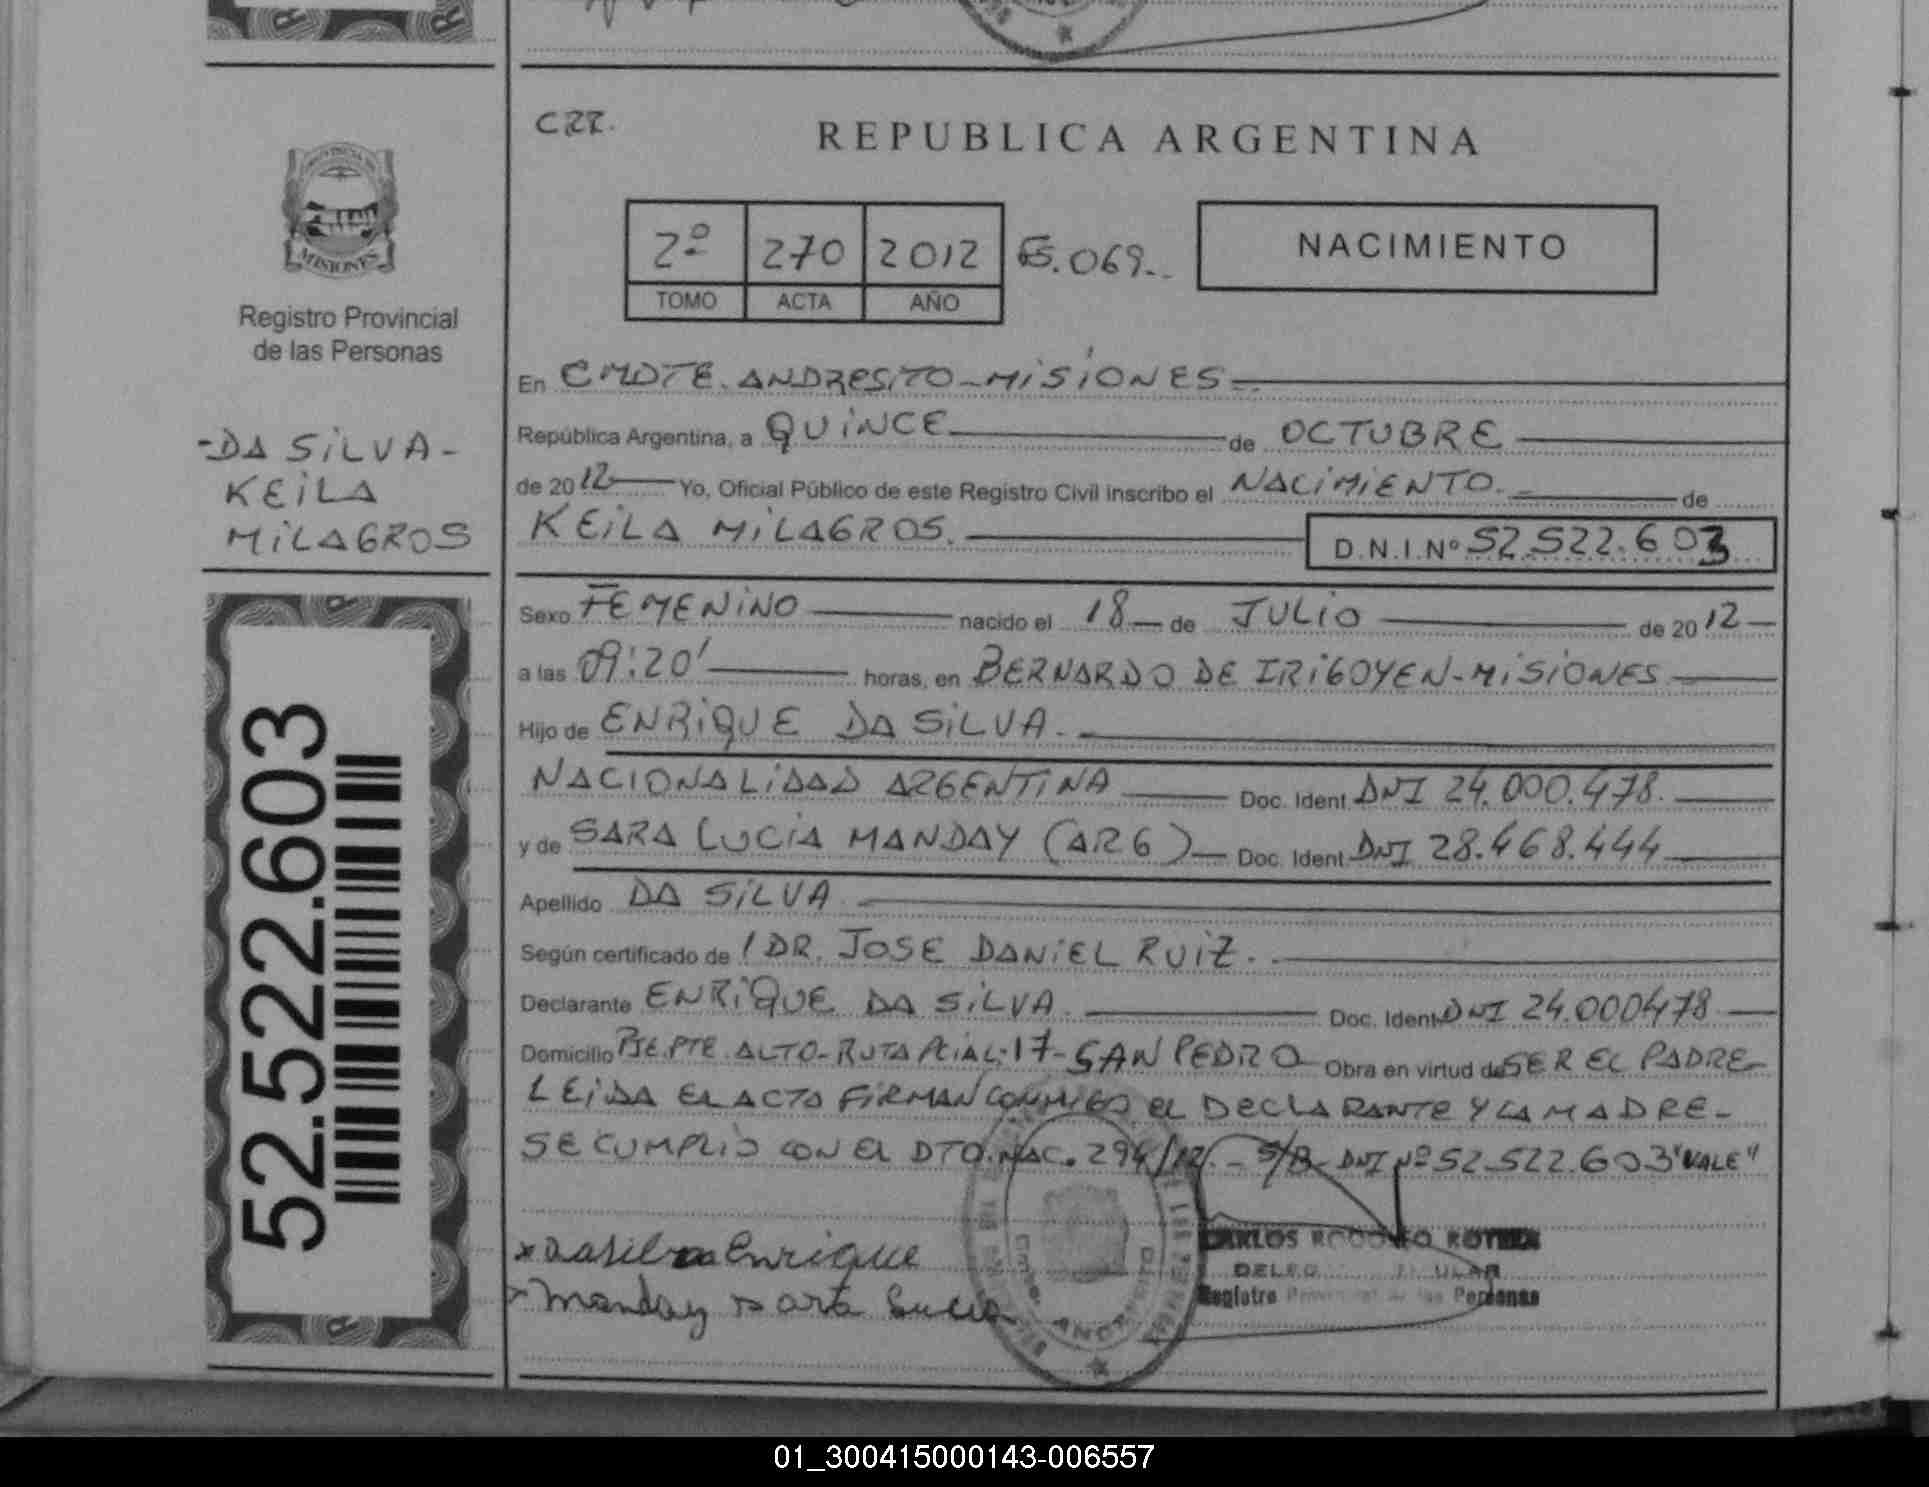 CRR.
REPUBLICA ARGENTINA
2º 270 2012 FS.069..
TOMO ACTA AÑO
NACIMIENTO
PROVINCIA DE
MISIONES
Registro Provincial
de las Personas
-DA SILVA-
KEILA
MILAGROS
52.522.603
En CMDTE. ANDRESITO-MISIONES
República Argentina, a QUINCE de OCTUBRE
de 2012 Yo, Oficial Público de este Registro Civil inscribo el NACIMIENTO. de
KEILA MILAGROS. D.N.I.Nº 52.522.603
Sexo FEMENINO nacido el 18 de JULIO de 2012
a las 09:20' horas, en BERNARDO DE IRIGOYEN-MISIONES
Hijo de ENRIQUE DA SILVA.
NACIONALIDAD ARGENTINA Doc. Ident. DNI 24.000.478.
y de SARA LUCIA MANDAY (ARG) Doc. Ident. DNI 28.468.444
Apellido DA SILVA
Según certificado de / DR. JOSE DANIEL RUIZ.
Declarante ENRIQUE DA SILVA. Doc. Ident. DNI 24.000478
Domicilio PJE.PTE.ALTO-RUTA PCIAL:17-SAN PEDRO Obra en virtud de SER EL PADRE-
LEIDA EL ACTA FIRMAN CONMIGO EL DECLARANTE Y LA MADRE-
SE CUMPLIO CON EL DTO.NAC. 294/12.- S/B- DNI Nº 52.522.603 "VALE"
x Dasilva Enrique
x Manday Sara Lucia
CARLOS RODOLFO
Registro Provincial de las Personas
01_300415000143-006557